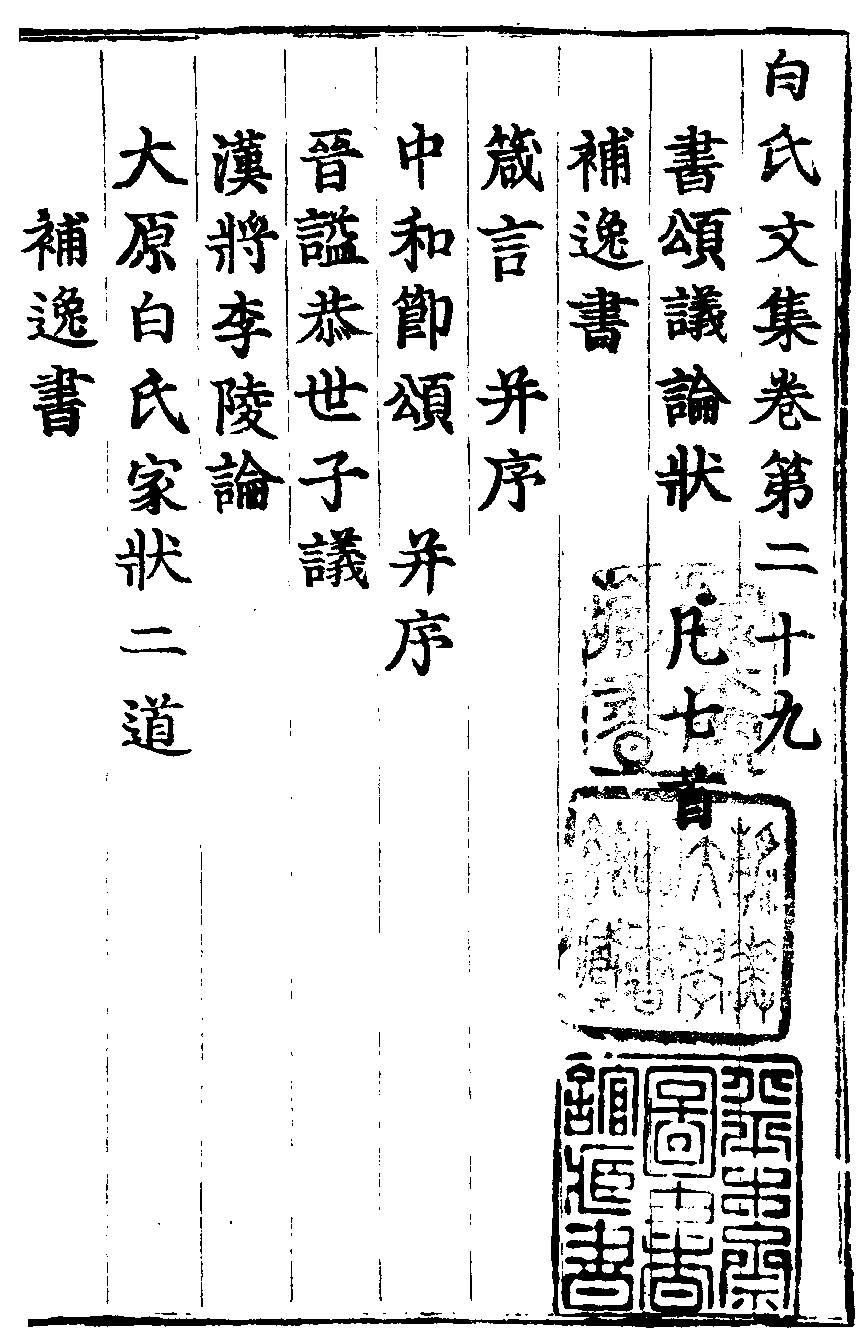 白氏文集卷第二十九
書頌議論狀 凡七首
補逸書
箴言 并序
中和節頌 并序
晉謚恭世子議
漢將李陵論
大原白氏家狀二道
補逸書